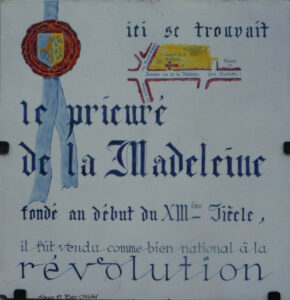 ici se trouvait
le prieuré
de la Madeleine
fondé au début du XIIIème Siècle,
il fût vendu comme bien national à la
révolution